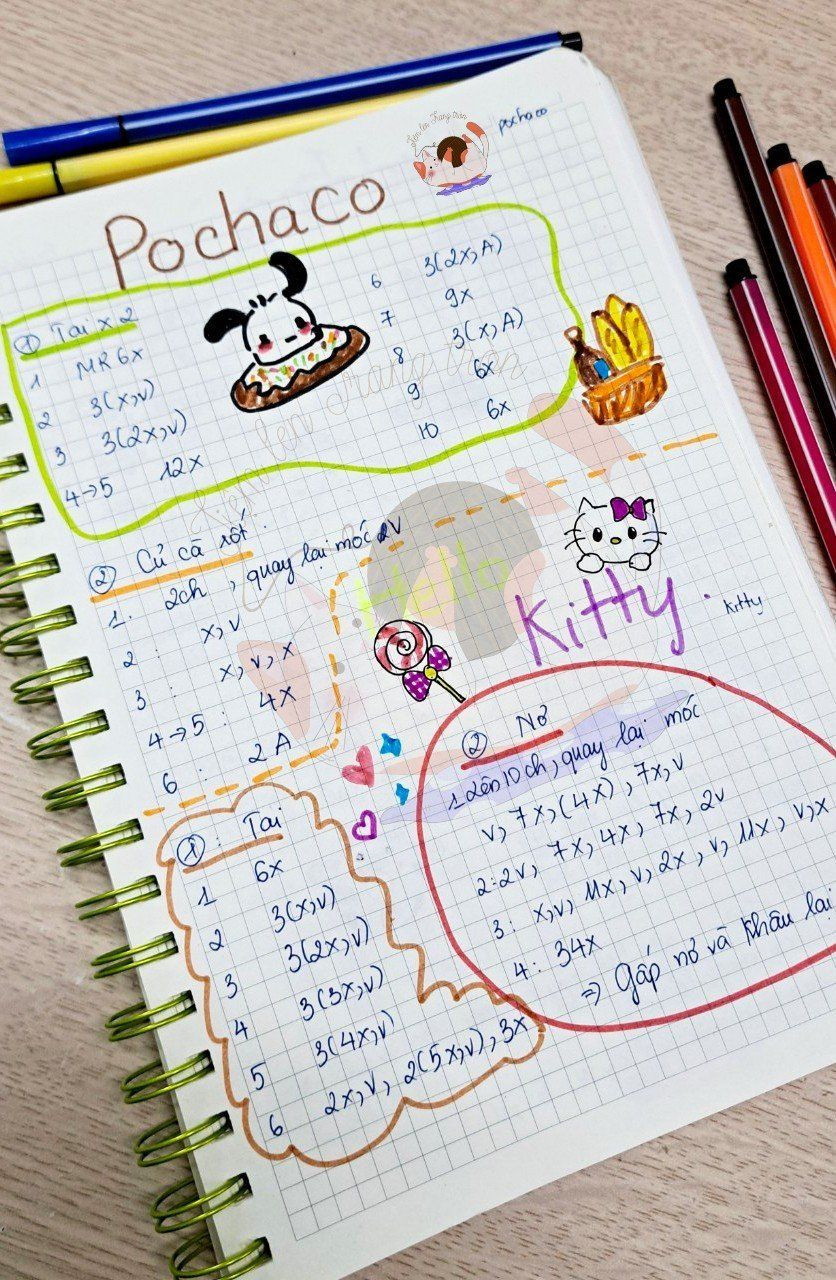 Tiệm len Trang tròn
pochaco
Pochaco
① Tai x 2
1 MR 6x
2 3(x,v)
3 3(2x,v)
4→5 12x
6 3(2x,A)
7 9x
8 3(x,A)
9 6x
10 6x
Tiệm len Trang tròn
② Củ cà rốt.
1. 2ch, quay lại móc 2V
2: x,v
3: x,v,x
4→5: 4x
6: 2A
Hello
Kitty.
kitty
①: Tai
1 6x
2 3(x,v)
3 3(2x,v)
4 3(3x,v)
5 3(4x,v)
6 2x,v, 2(5x,v),3x
② Nơ
1 Lên 10ch, quay lại móc
v, 7x,(4x), 7x,v
2:2v, 7x, 4x, 7x, 2v
3: x,v, 11x,v, 2x, v, 11x, v,x
4: 34x
⇒ Gấp nơ và khâu lại